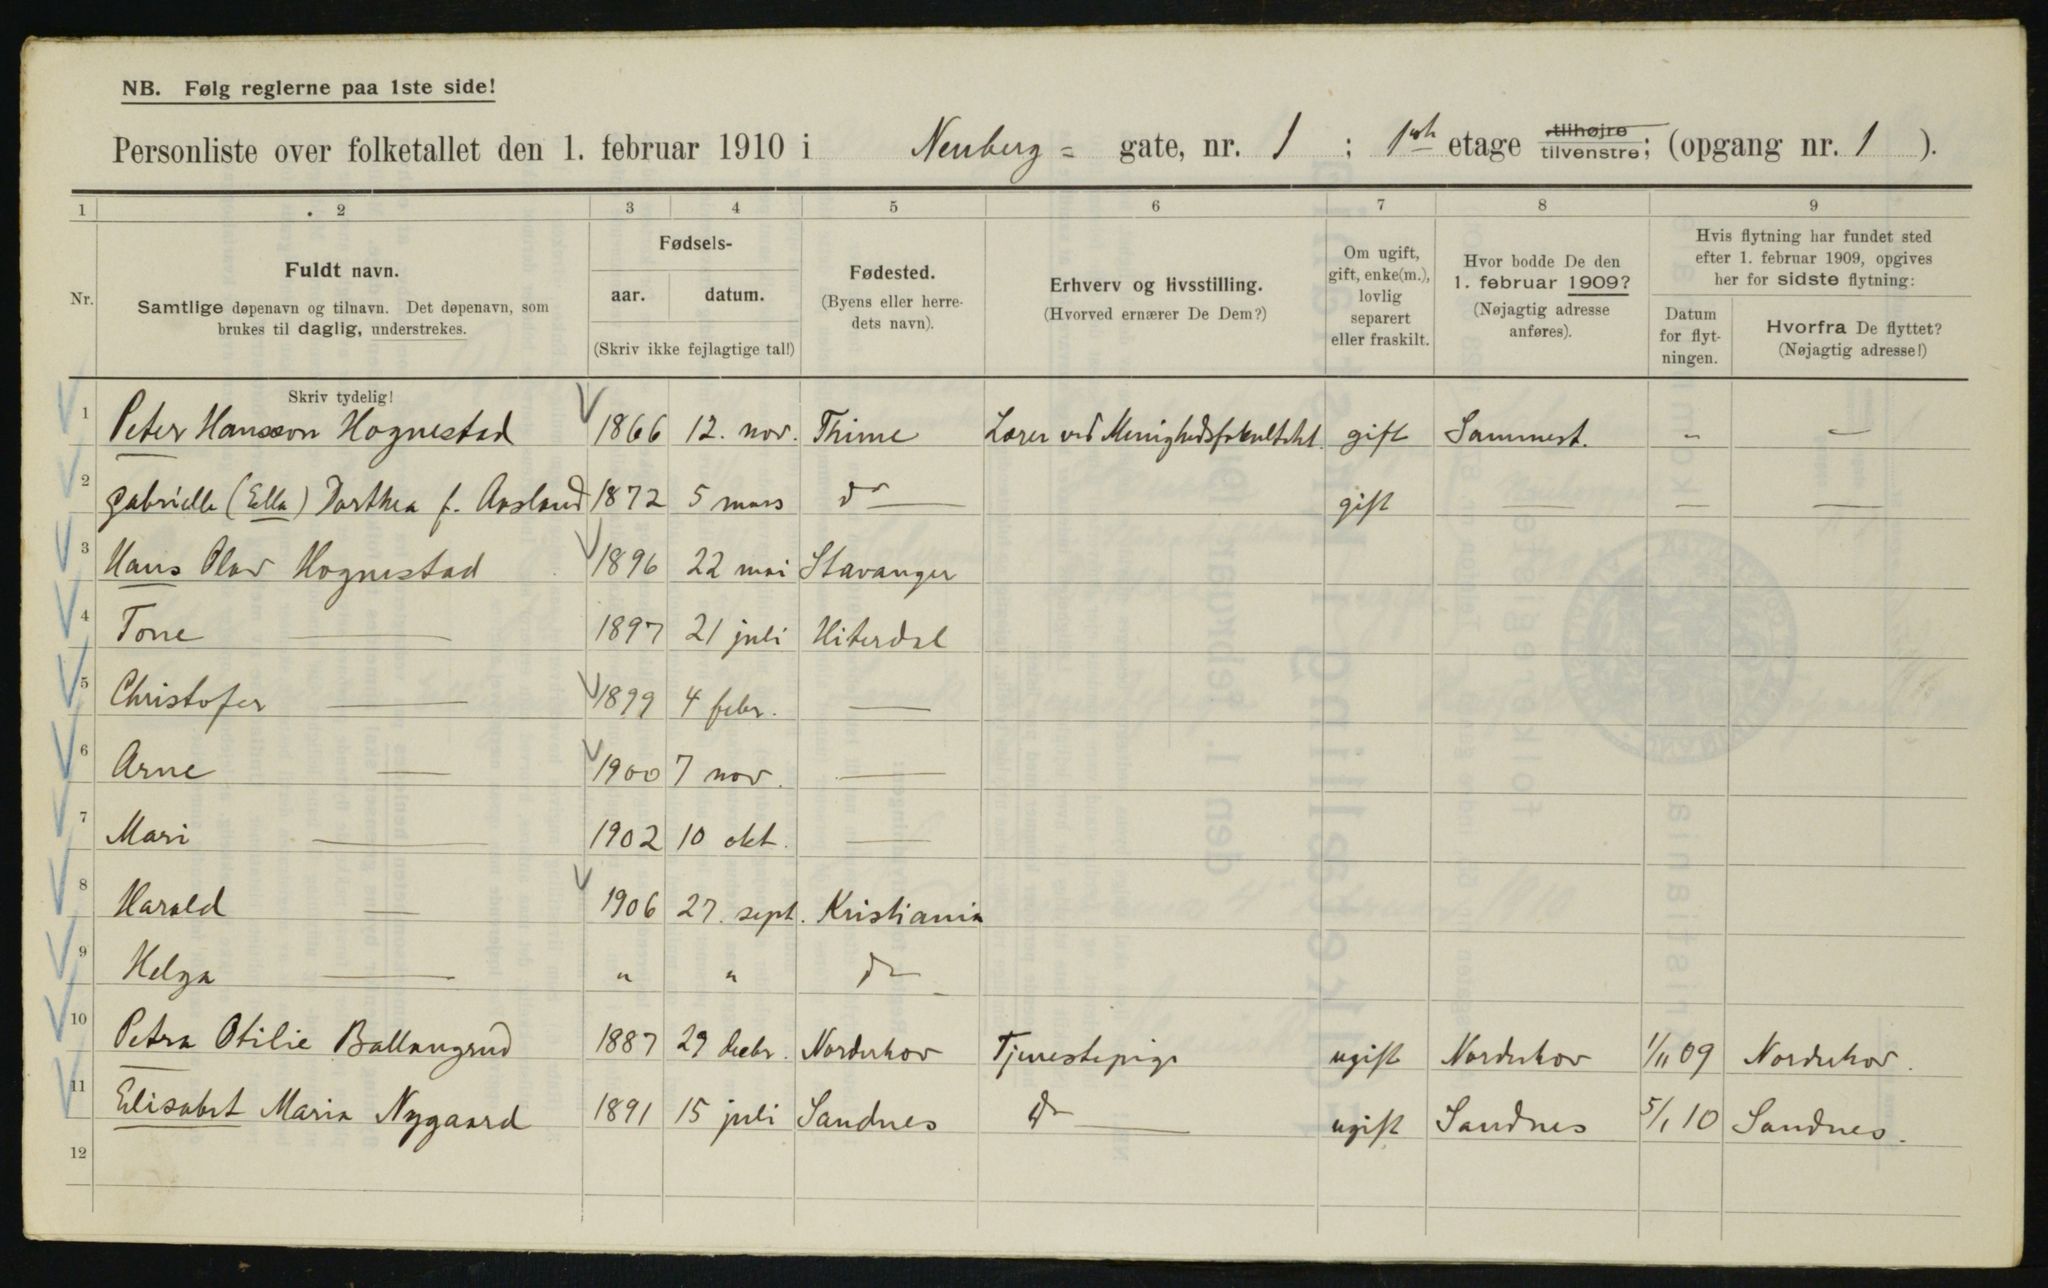 NB. Følg reglerne paa 1ste side!
Personliste over folketallet den 1. februar 1910 i Neuberg= gate, nr. 1 ; 1ste etage tilhøjre tilvenstre; (opgang nr. 1 ).
1 2 3 4 5 6 7 8 9
Nr.
Fuldt navn.
Samtlige døpenavn og tilnavn. Det døpenavn, som
brukes til daglig, understrekes.
Fødsels-
aar. datum.
(Skriv ikke fejlagtige tal!)
Fødested.
(Byens eller herre-
dets navn).
Erhverv og livsstilling.
(Hvorved ernærer De Dem?)
Om ugift,
gift, enke(m.),
lovlig
separert
eller fraskilt.
Hvor bodde De den
1. februar 1909?
(Nøjagtig adresse
anføres).
Hvis flytning har fundet sted
efter 1. februar 1909, opgives
her for sidste flytning:
Datum
for flyt-
ningen.
Hvorfra De flyttet?
(Nøjagtig adresse!)
Skriv tydelig!
1 Peter Hansson Hognestad 1866 12. nov. Thime Lærer ved Menighedsfakultetet. gift Sammest. " —
2 Gabrielle (Ella) Dorthea f. Aasland 1872 5 mars do — gift — — —
3 Hans Olav Hognestad 1896 22 mai Stavanger
4 Tone — 1897 21 juli Hiterdal
5 Christofer — 1899 4 febr. —
6 Arne — 1900 7 nov. —
7 Mari — 1902 10 okt. —
8 Harald — 1906 27. sept. Kristiania
9 Helga — " " do
10 Petra Otilie Ballangrud 1887 29 decbr. Norderhov Tjenestepige ugift Norderhov 1/11 09 Norderhov.
11 Elisabet Maria Nygaard 1891 15 juli Sandnes do — ugift Sandnes 5/1 10 Sandnes.
12